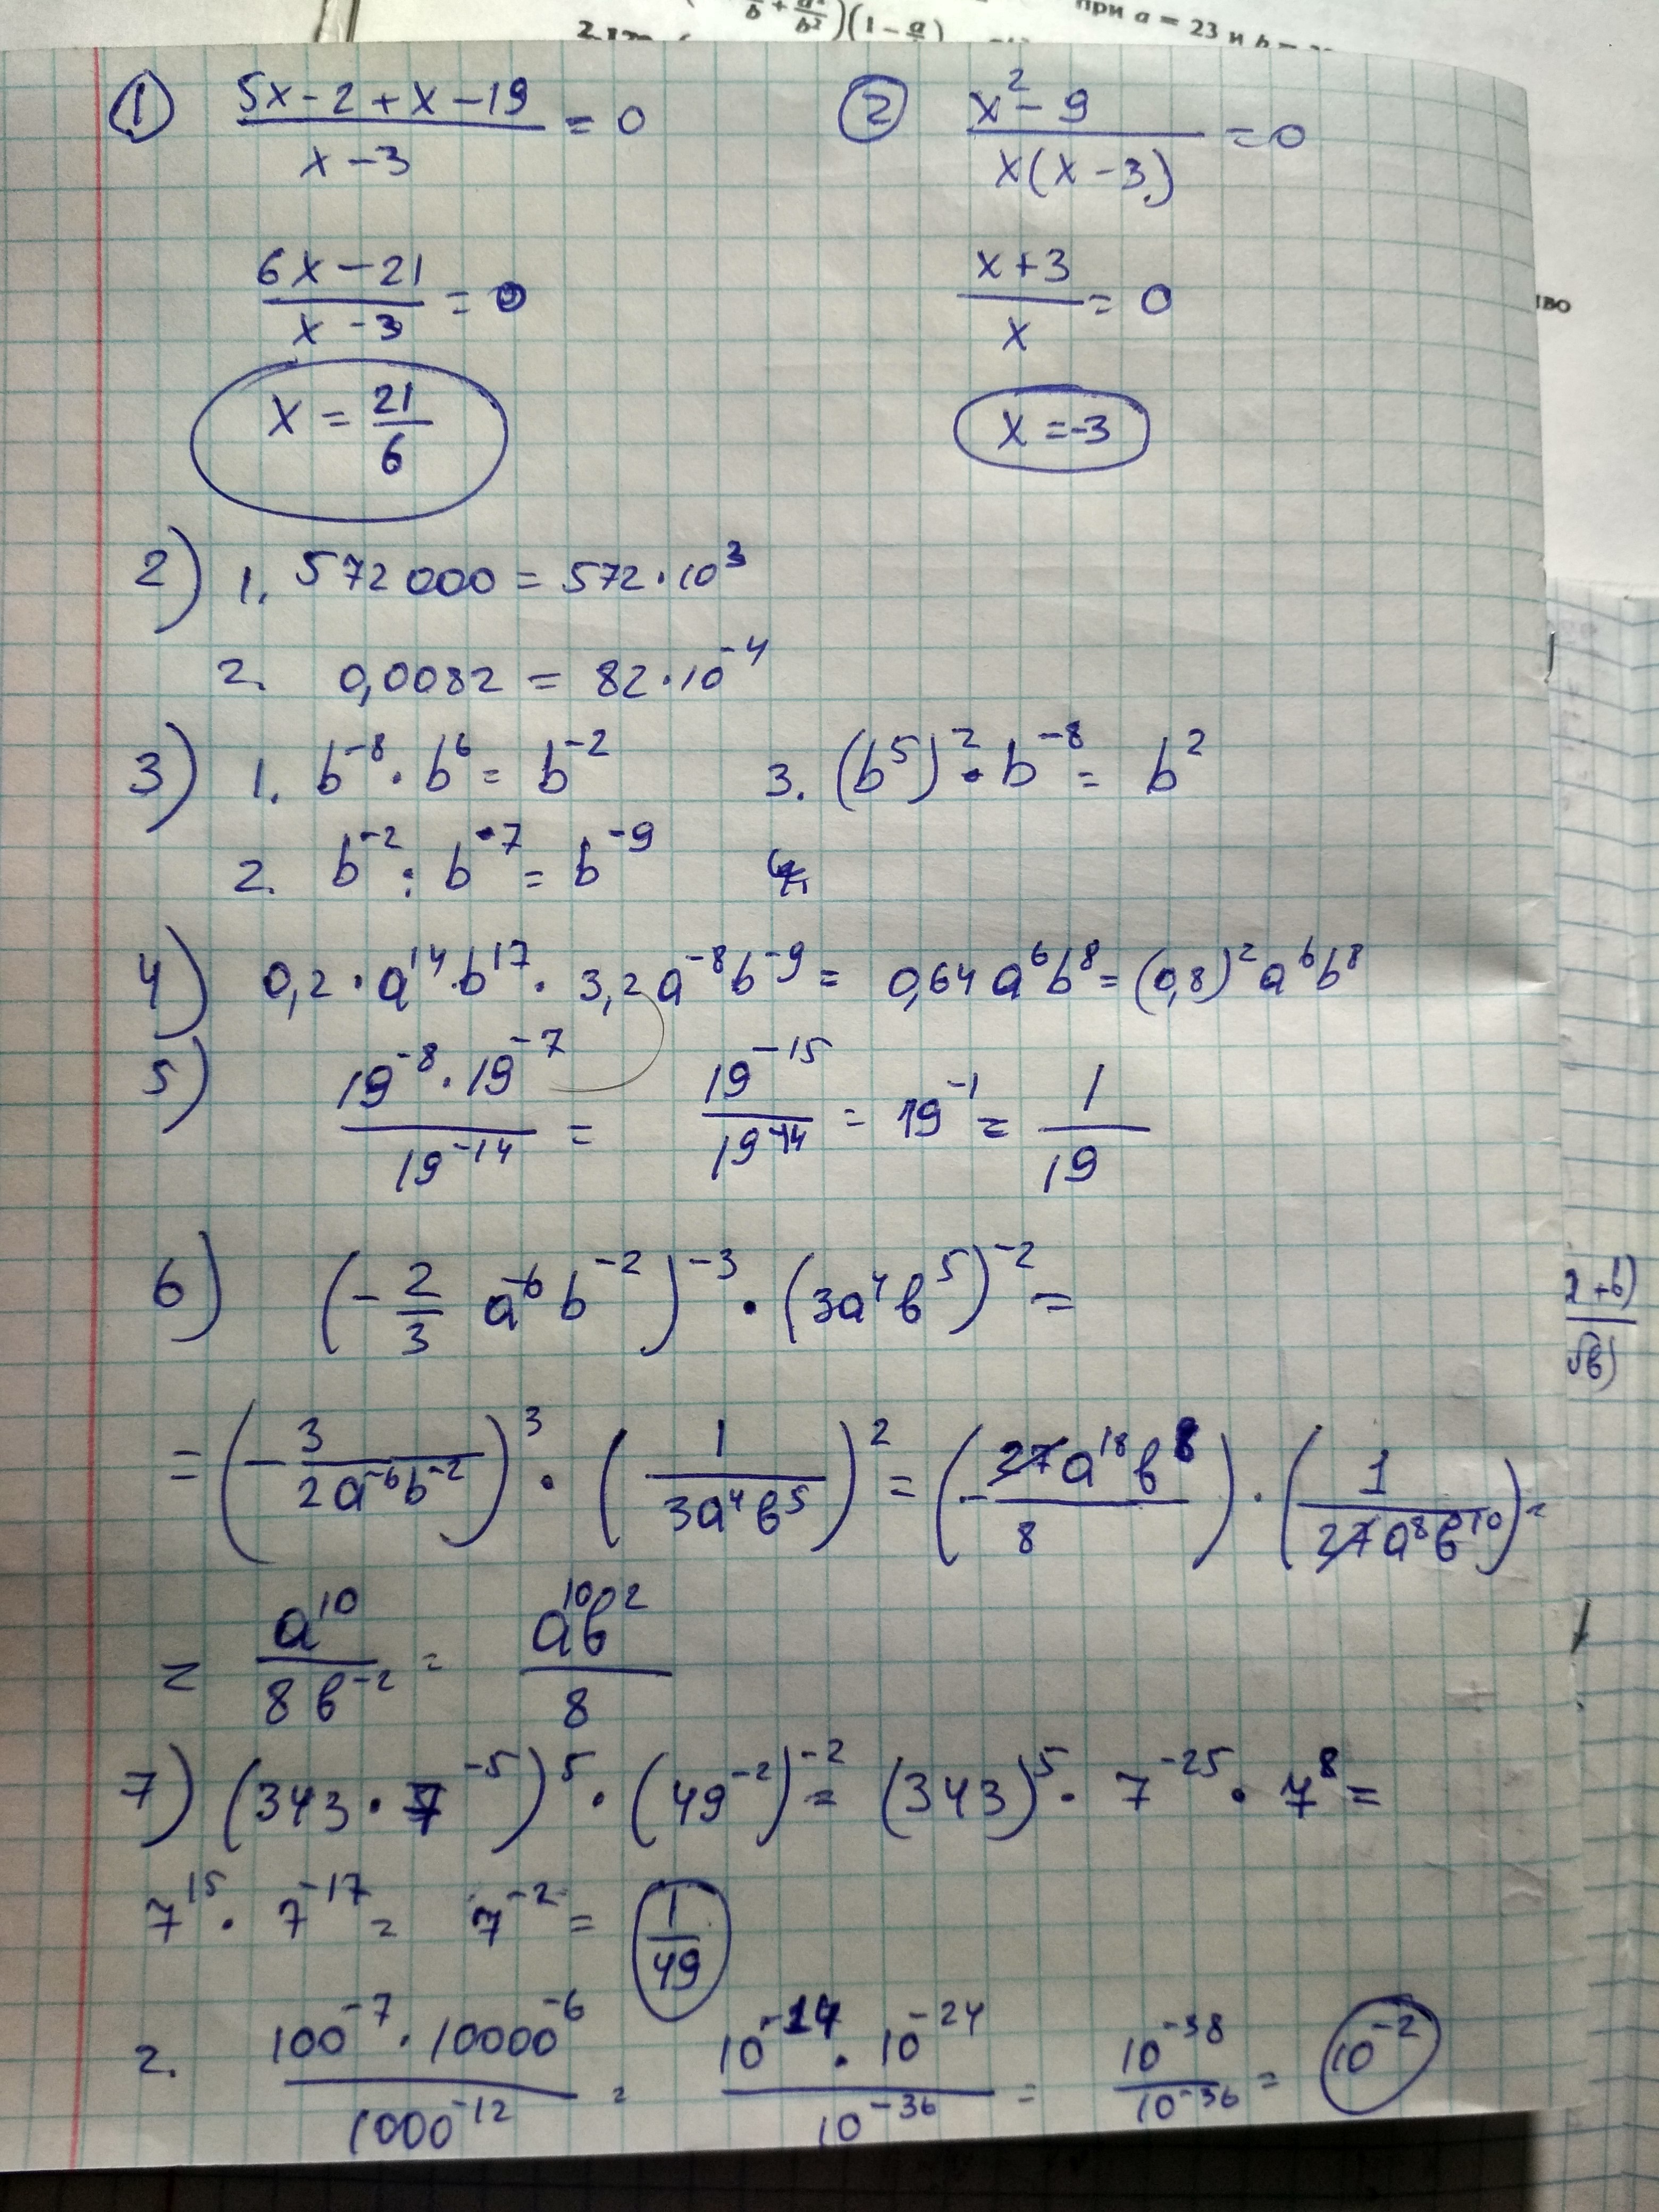 при a = 23 и b =
① (5x-2+x-19)/(x-3) = 0
② (x²-9)/(x(x-3)) = 0
(6x-21)/(x-3) = 0
(x+3)/x = 0
x = 21/6
x = -3
2) 1. 572 000 = 572·10³
2. 0,0082 = 82·10⁻⁴
3) 1. b⁻⁸·b⁶ = b⁻²
3. (b⁵)²·b⁻⁸ = b²
2. b⁻² : b⁻⁷ = b⁻⁹
4) 0,2·a¹⁴·b¹⁷·3,2a⁻⁸b⁻⁹ = 0,64a⁶b⁸ = (0,8)²a⁶b⁸
5) (19⁻⁸·19⁻⁷)/19⁻¹⁴ = 19⁻¹⁵/19⁻¹⁴ = 19⁻¹ = 1/19
6) (-2/3 a⁻⁶b⁻²)⁻³·(3a⁴b⁵)⁻² =
= (-3/(2a⁻⁶b⁻²))³·(1/(3a⁴b⁵))² = (-27a¹⁸b⁸/8)·(1/(27a⁸b¹⁰)) =
= a¹⁰/(8b⁻²) = a¹⁰b²/8
7) (343·7⁻⁵)⁵·(49⁻²)⁻² = (343)⁵·7⁻²⁵·7⁸ =
7¹⁵·7⁻¹⁷ = 7⁻² = 1/49
2. (100⁻⁷·10000⁻⁶)/1000⁻¹² = (10⁻¹⁴·10⁻²⁴)/10⁻³⁶ = 10⁻³⁸/10⁻³⁶ = 10⁻²